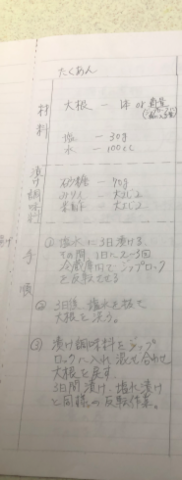 たくあん
材料
大根 一本 or
塩 ー 30g
水 ー 100cc
漬け調味料
砂糖 ー 90g
みりん ー 大さじ2
ー 大さじ2
手順
① 塩水に3日漬ける。
その間 1日に2〜3回
冷蔵庫内でジップロック
を反転させる
② 3日後 塩水を捨て
大根を洗う。
③ 漬け調味料をジップ
ロックに入れ 混ぜ合わせ
大根を戻す。
3日間漬け、塩水漬け
と同様の反転作業。